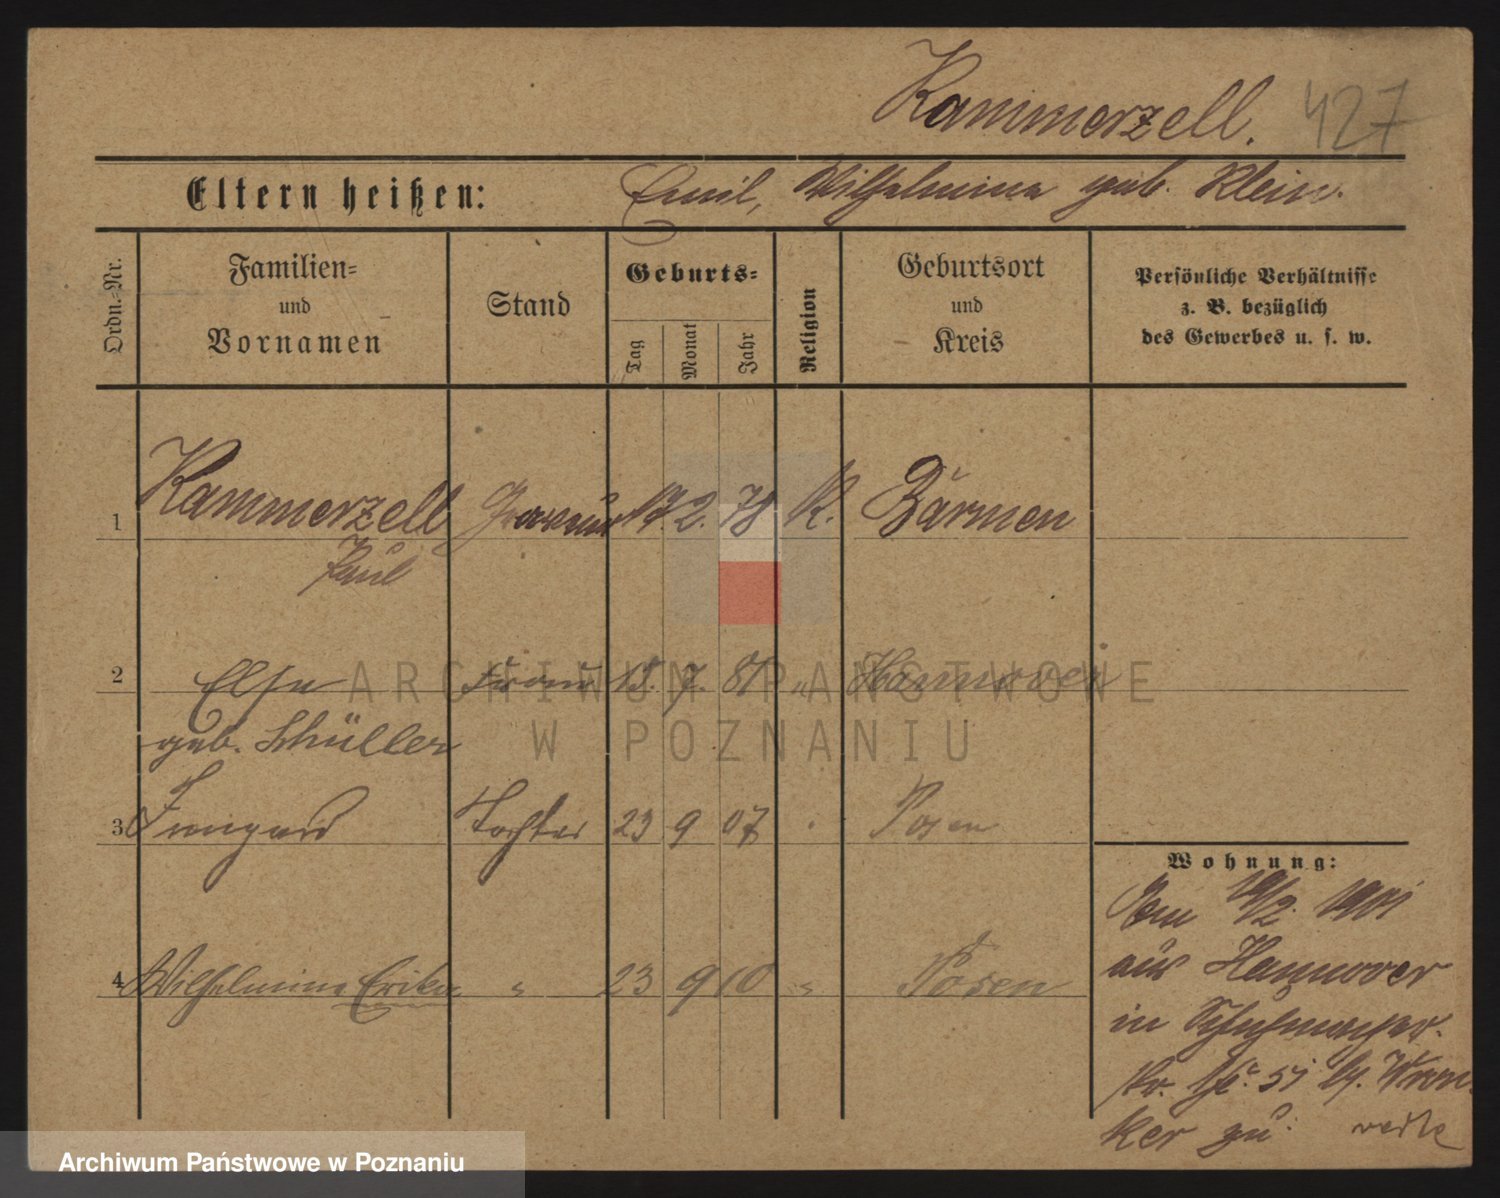 Kammerzell.
427
Eltern heißen: Emil, Wilhelmine geb. Klein.
Ordn.-Nr.
Familien-
und
Vornamen
Stand
Geburts-
Tag
Monat
Jahr
Religion
Geburtsort
und
Kreis
Persönliche Verhältnisse
z. B. bezüglich
des Gewerbes u. s. w.
1 Kammerzell Graveur 17. 2. 78 K. Barmen
Paul
2 Else Frau 18. 7. 81 " Hannover
geb. Schüller
3 Irmgard Tochter 23 9 07 Posen
4 Wilhelmine Erika " 23 9 10 " Posen
Wohnung:
Vom 19/2. 1901
aus Hannover
in
str. No. 51 by.
ker zu.
ARCHIWUM PAŃSTWOWE
W POZNANIU
Archiwum Państwowe w Poznaniu